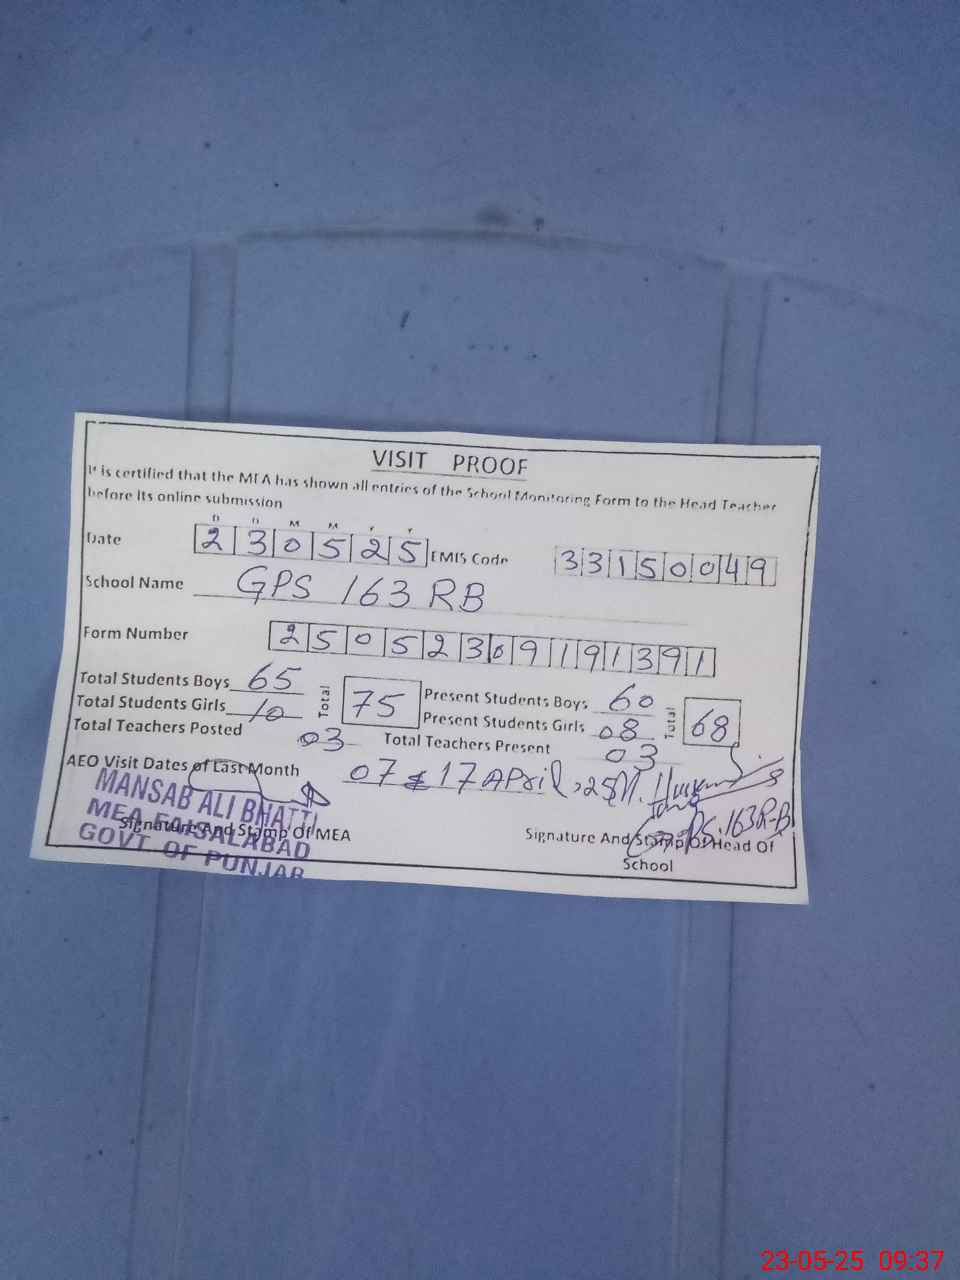 VISIT PROOF
It is certified that the MEA has shown all entries of the School Monitoring Form to the Head Teacher
before its online submission
D D M M Y Y
Date 2 3 0 5 2 5 EMIS Code 3 3 1 5 0 0 4 9
School Name GPS 163 RB
Form Number 2 5 0 5 2 3 0 9 1 9 1 3 9 1
Total Students Boys 65 Total 75 Present Students Boys 60 Total 68
Total Students Girls 10 Present Students Girls 08
Total Teachers Posted 03 Total Teachers Present 03
AEO Visit Dates of Last Month 07 & 17 April, 25
MANSAB ALI BHATTI
MEA FAISALABAD
GOVT. OF PUNJAB
Signature And Stamp Of MEA
163 R-B
Signature And Stamp Of Head Of
School
23-05-25 09:37